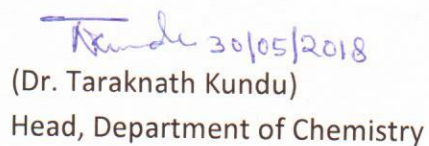 TKundu 30/05/2018
(Dr. Taraknath Kundu)
Head, Department of Chemistry